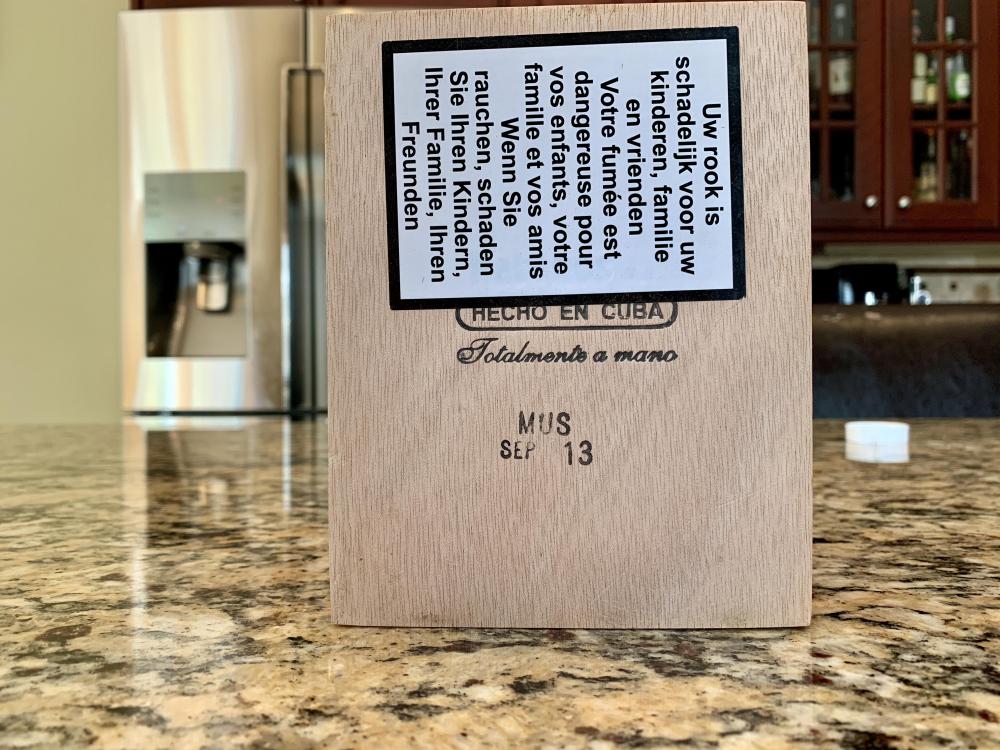 Uw rook is
schadelijk voor uw
kinderen, familie
en vrienden
Votre fumée est
dangereuse pour
vos enfants, votre
famille et vos amis
Wenn Sie
rauchen, schaden
Sie Ihren Kindern,
Ihrer Familie, Ihren
Freunden
HECHO EN CUBA
Totalmente a mano
MUS
SEP 13